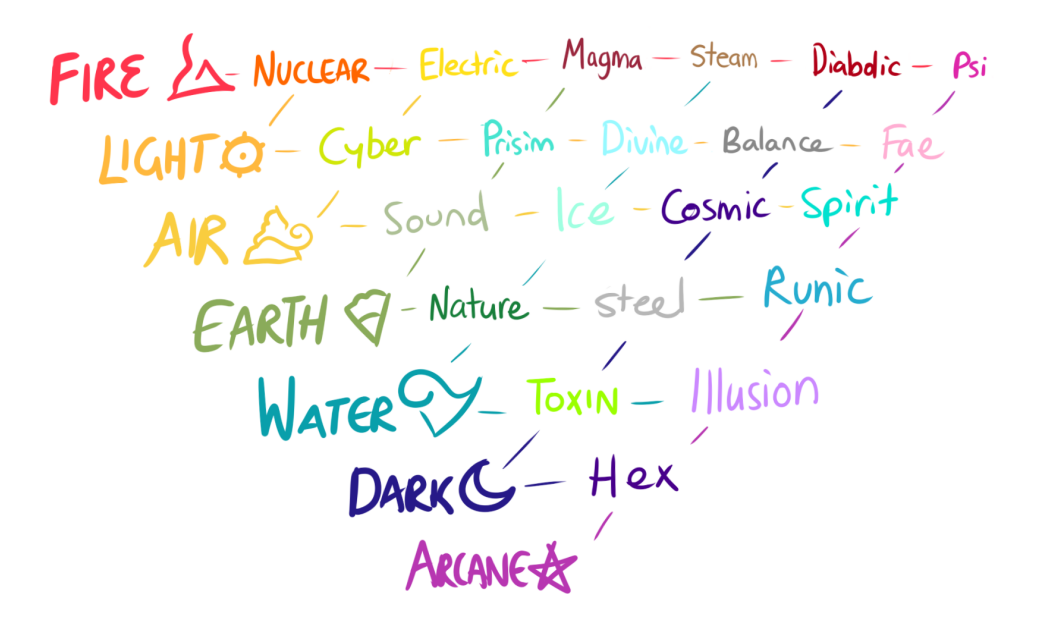 FIRE NUCLEAR Electric Magma Steam Diabolic Psi
LIGHT Cyber Prisim Divine Balance Fae
AIR Sound Ice Cosmic Spirit
EARTH Nature steel Runic
WATER TOXIN Illusion
DARK Hex
ARCANE